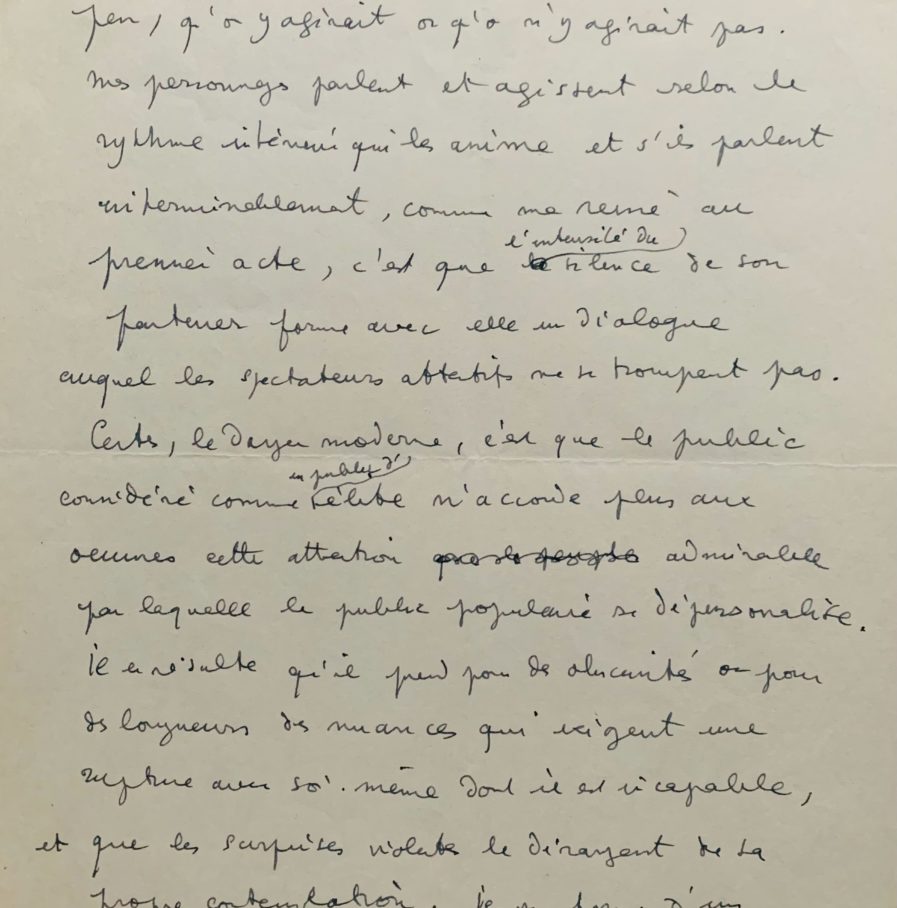 peu, qu'on y agirait ou qu'on n'y agirait pas.
mes personnages parlent et agissent selon le
rythme intérieur qui les anime et s'ils parlent
interminablement, comme ma reine au
premier acte, c'est que l'intensité du silence de son
partenaire forme avec elle un dialogue
auquel les spectateurs attentifs ne se trompent pas.
Certes, le danger moderne, c'est que le public
considéré comme un public d'élite n'accorde plus aux
oeuvres cette attention admirable
par laquelle le public populaire se dépersonalise.
il en résulte qu'il prend pour des obscurités ou pour
des longueurs des nuances qui exigent une
rupture avec soi-même dont il est incapable,
et que les surprises violentes le dérangent de sa
propre contemplation.